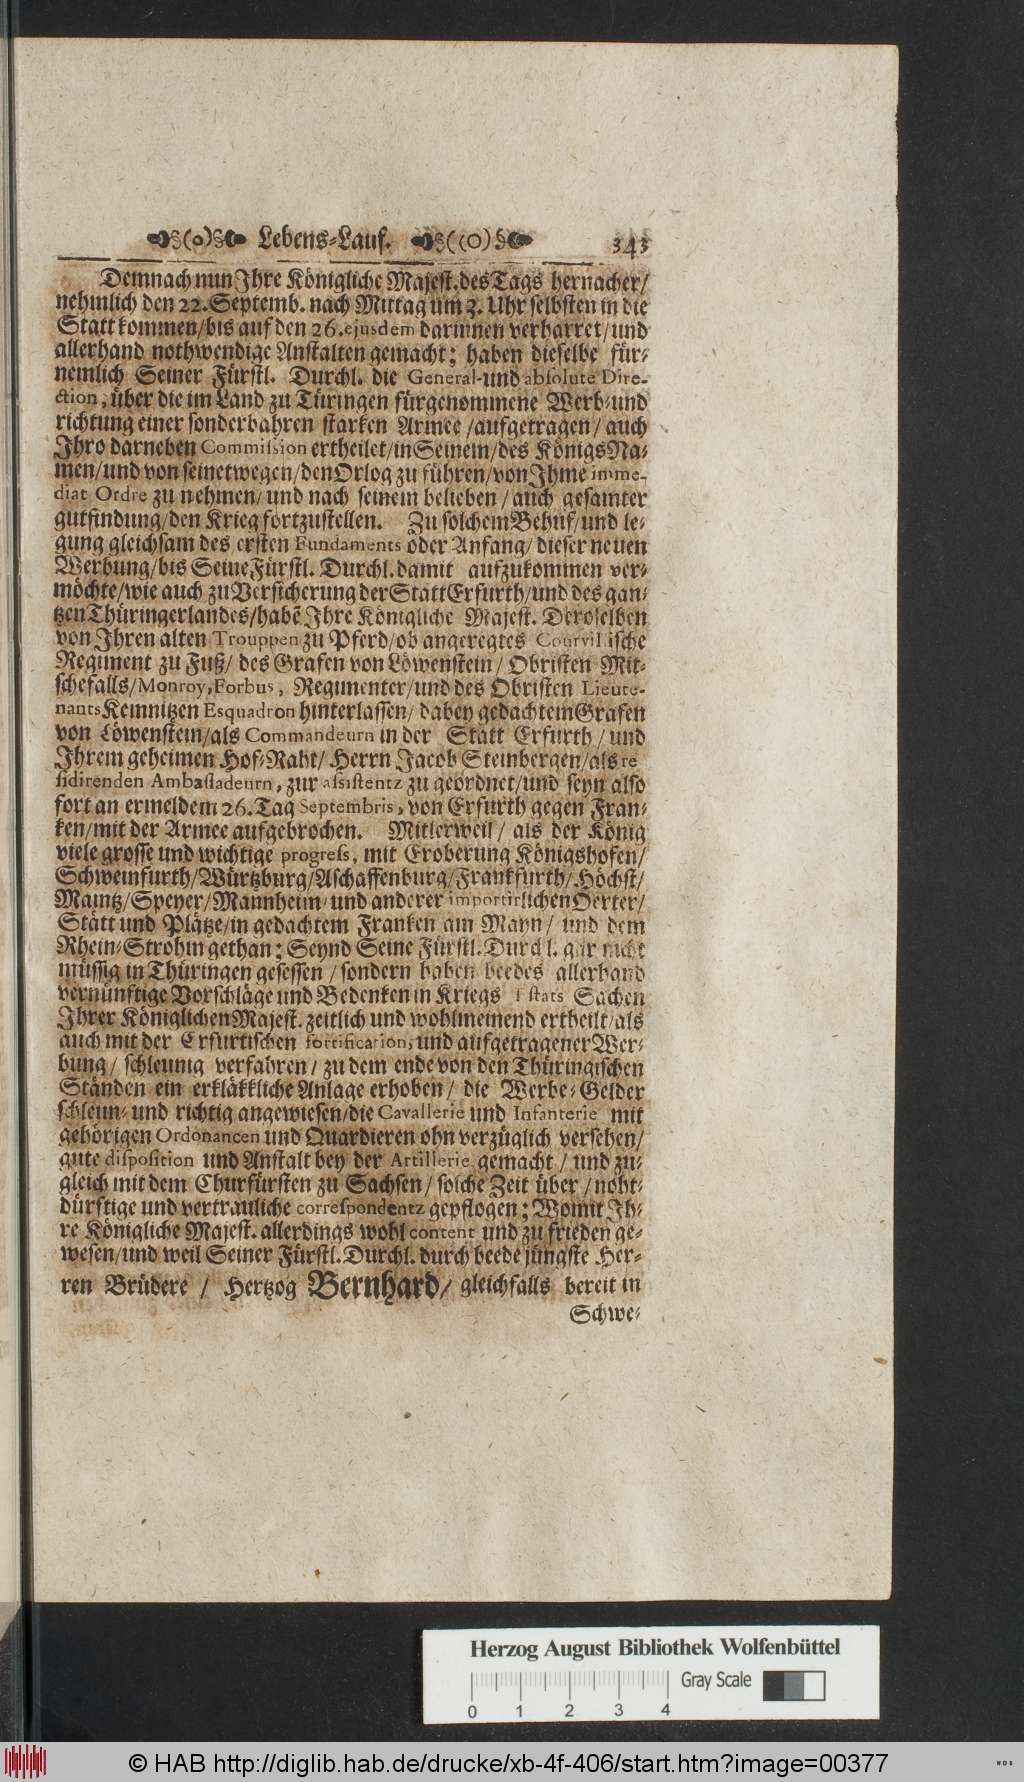 Lebens-Lauf. 343
Demnach nun Ihre Königliche Majest. des Tags hernacher/
nehmlich den 22. Septemb. nach Mittag um 3. Uhr selbsten in die
Statt kommen/bis auf den 26. ejusdem darinnen verharret/und
allerhand nothwendige Anstalten gemacht; haben dieselbe für-
nemlich Seiner Fürstl. Durchl. die General- und absolute Dire-
ction, über die im Land zu Türingen fürgenommene Werb- und
richtung einer sonderbahren starken Armee/aufgetragen/auch
Ihro darneben Commission ertheilet/in Seinem/des Königs Na-
men/und von seinetwegen/den Orlog zu führen/von Ihme imme-
diat Ordre zu nehmen/und nach seinem belieben/auch gesamter
gutfindung/den Krieg fortzustellen. Zu solchem Behuf/und le-
gung gleichsam des ersten Fundaments oder Anfang/dieser neuen
Werbung/bis Seine Fürstl. Durchl. damit aufzukommen ver-
möchte/wie auch zu Versicherung der Statt Erfurth/und des gan-
tzen Thüringerlandes/habẽ Ihre Königliche Majest. Deroselben
von Ihren alten Trouppen zu Pferd/ob angeregtes Courvillische
Regiment zu Fuß/des Grafen von Löwenstein/Obristen Mit-
schefalls/Monroy, Forbus, Regimenter/und des Obristen Lieute-
nants Kemnitzen Esquadron hinterlassen/dabey gedachtem Grafen
von Löwenstein/als Commandeurn in der Statt Erfurth/und
Ihrem geheimen Hof-Raht/Herrn Jacob Steinbergen/als re
sidirenden Ambassadeurn, zur assistentz zu geordnet/und seyn also
fort an ermeldem 26. Tag Septembris, von Erfurth gegen Fran-
ken/mit der Armee aufgebrochen. Mitlerweil/als der König
viele grosse und wichtige progress, mit Eroberung Königshofen/
Schweinfurth/Würtzburg/Aschaffenburg/Frankfurth/Höchst/
Maintz/Speyer/Mannheim/und anderer importirlichen Oerter/
Stätt und Plätze/in gedachtem Franken am Mayn/und dem
Rhein-Strohm gethan; Seynd Seine Fürstl. Durchl. gar nicht
müssig in Thüringen gesessen/sondern haben beedes allerhand
vernünftige Vorschläge und Bedenken in Kriegs stats Sachen
Ihrer Königlichen Majest. zeitlich und wohlmeinend ertheilt/als
auch mit der Erfurtischen fortification, und aufgetragener Wer-
bung/schleunig verfahren/zu dem ende von den Thüringischen
Ständen ein erkläkkliche Anlage erhoben/die Werbe-Gelder
schleun- und richtig angewiesen/die Cavallerie und Infanterie mit
gehörigen Ordonancen und Quardieren ohn verzüglich versehen/
gute disposition und Anstalt bey der Artillerie gemacht/und zu-
gleich mit dem Churfürsten zu Sachsen/solche Zeit über/noht-
dürftige und vertrauliche correspondentz gepflogen; Womit Ih-
re Königliche Majest. allerdings wohl content und zu frieden ge-
wesen/und weil Seiner Fürstl. Durchl. durch beede jüngste Her-
ren Brüdere/Hertzog Bernhard/gleichfalls bereit in
Schwe-
Herzog August Bibliothek Wolfenbüttel
Gray Scale
0 1 2 3 4
© HAB http://diglib.hab.de/drucke/xb-4f-406/start.htm?image=00377